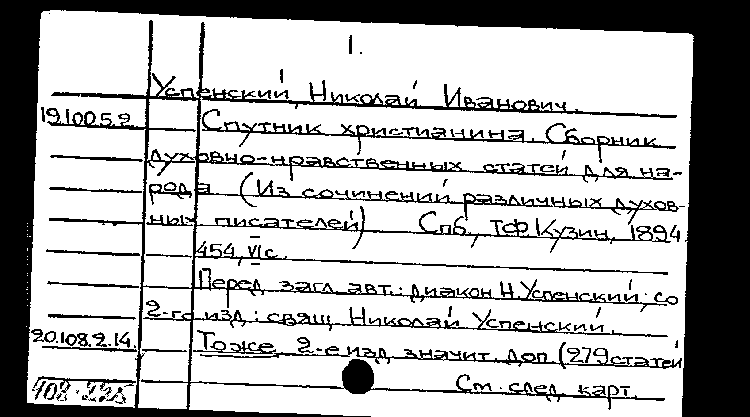 1.
Успенский, Николай Иванович.
19.100.5.2 Спутник христианина. Сборник
духовно-нравственных статей для на-
рода. (Из сочинений различных духов-
ных писателей) Спб., Т-Ф Кузин, 1894
454, VI с.
Перед загл. авт.: диакон Н. Успенский; со
2-го изд.: свящ. Николай Успенский.
20.108.2.14. То же. 2-е изд. значит. доп. (279 статей
См. след. карт.
408-225